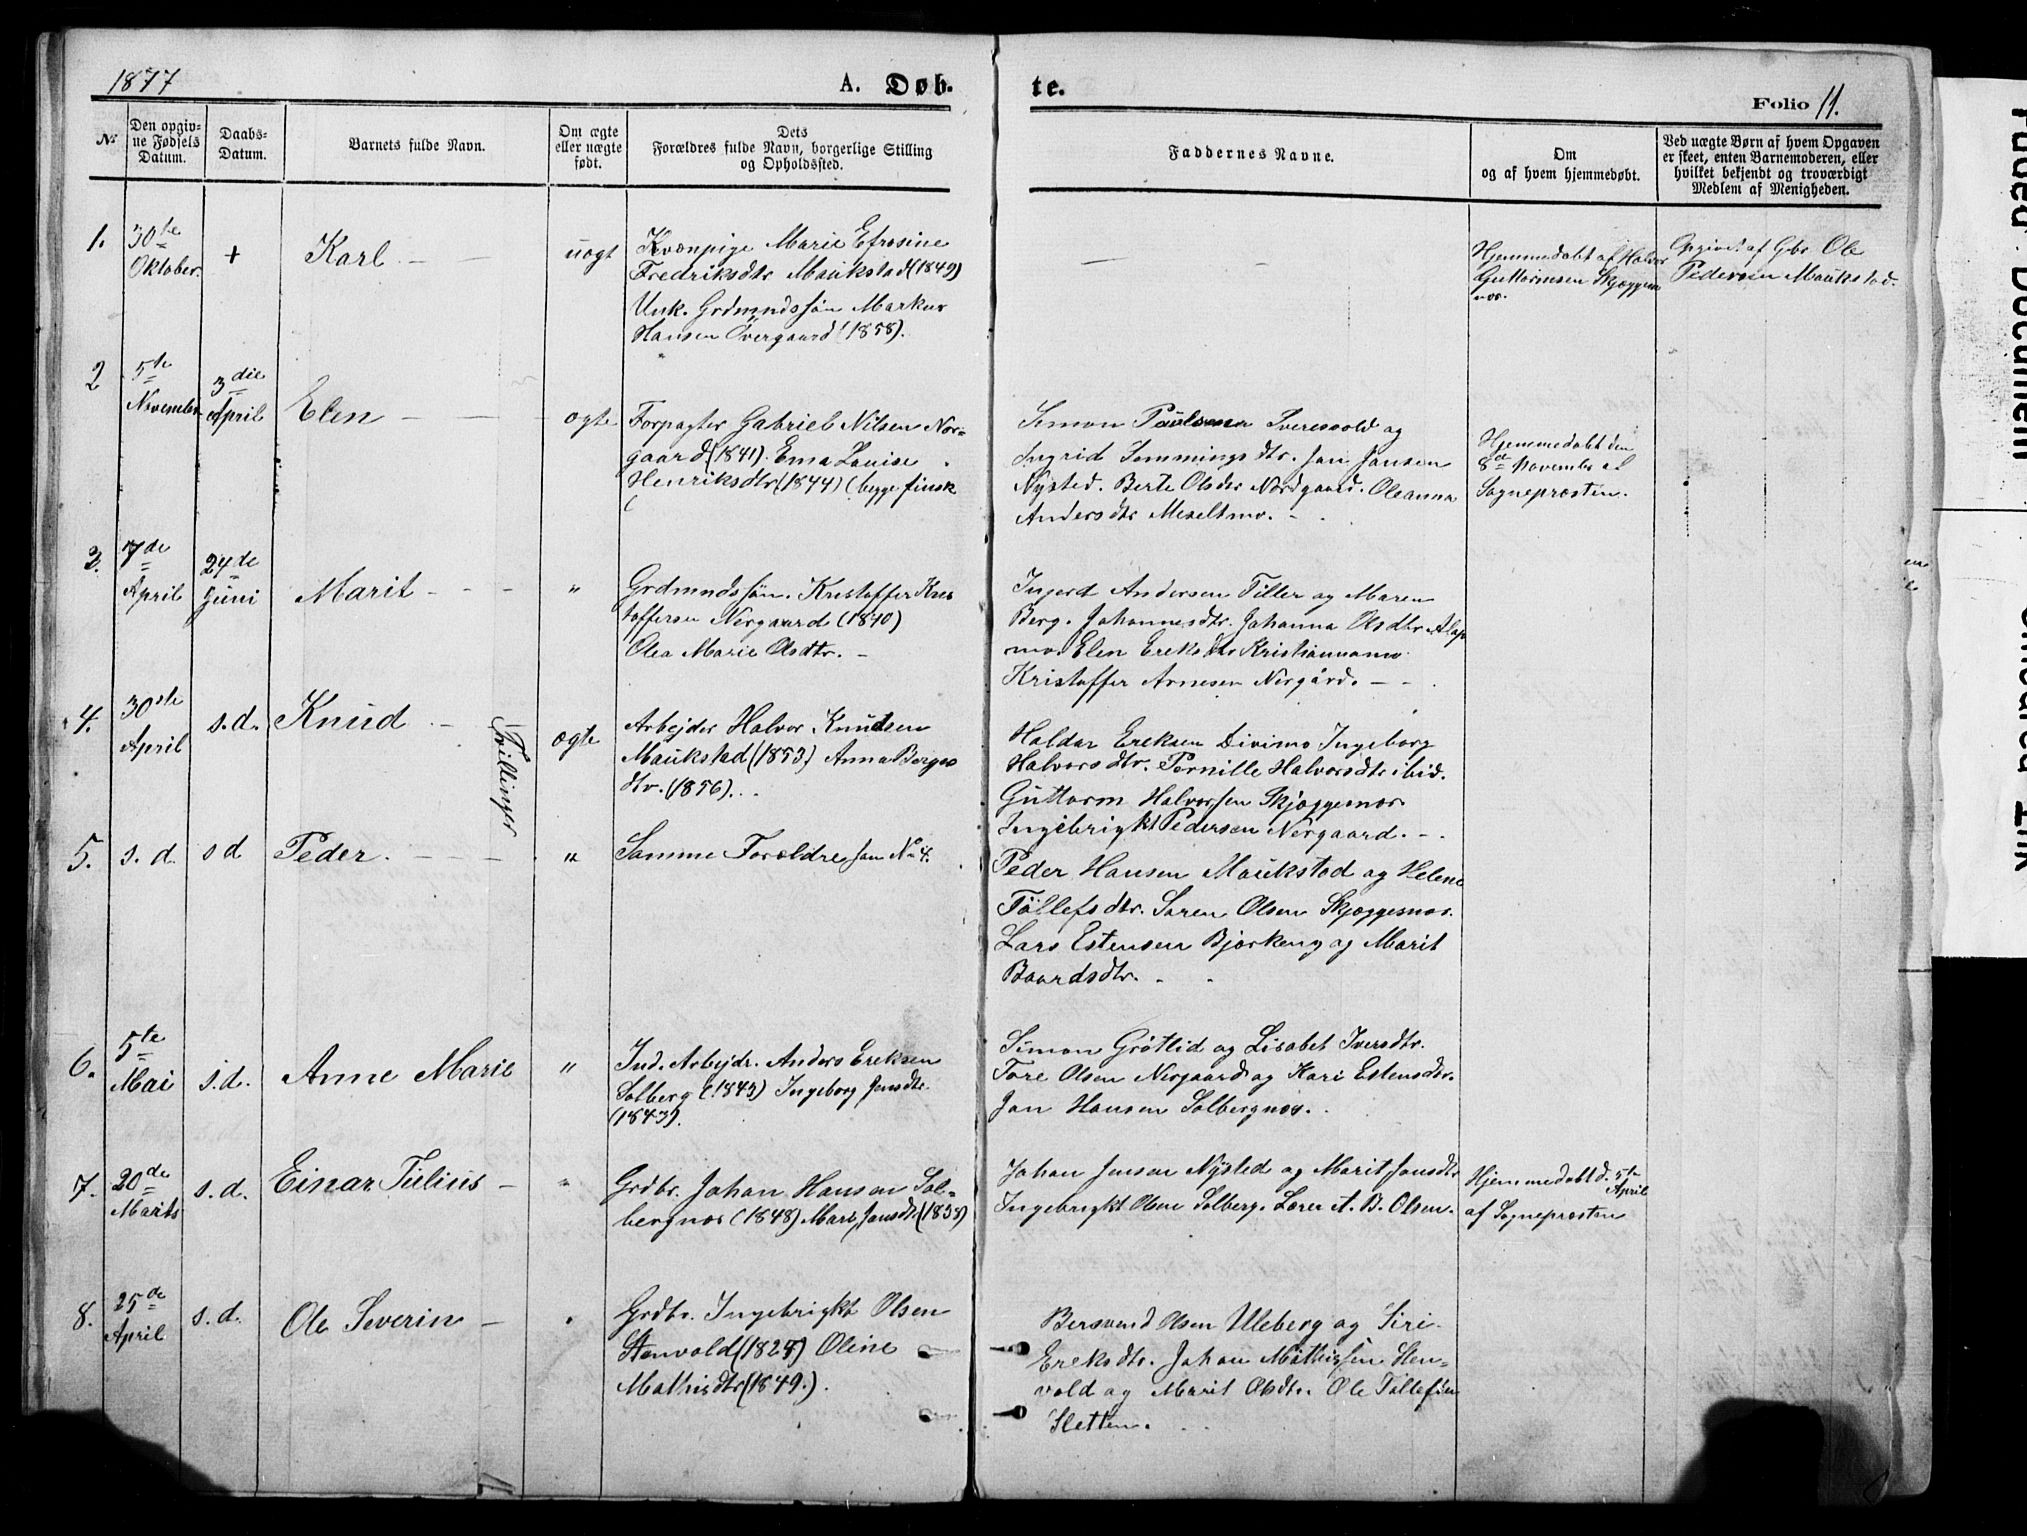 1877
A. Døb.
te.
Folio 11.
№
Den opgiv-
ne Fødsels
Datum.
Daabs-
Datum.
Barnets fulde Navn.
Om ægte
eller uægte
født.
Dets
Forældres fulde Navn, borgerlige Stilling
og Opholdssted.
Faddernes Navne.
Om
og af hvem hjemmedøbt.
Ved uægte Børn af hvem Opgaven
er skeet, enten Barnemoderen, eller
hvilket bekjendt og troværdigt
Medlem af Menigheden.
1.
30te
Oktober.
+
Karl — —
uægt
Kvænpige Marie Efrosine
Fredriksdtr Maukstad (1849)
Unk. Grdmndssøn Markus
Hansen Övergaard (1858).
—
Hjemmedøbt af Halvor
Guttormsen Skjæggesnæs.
Opgivet af Gbr Ole
Pedersen Maukstad.
2
5te
November
3die
April
Elen — — —
ægte
Forpagter Gabriel Nilsen Nor-
gaard (1841). Ema Louise
Henriksdtr (1844) (begge finsk
(
Simon Paulsen Iveresvold og
Ingrid Semmingsdtr. Jan Jansen
Nysted. Berte Olsdtr Nordgaard. Oleanna
Andersdtr Meseltmo. -
Hjemmedøbt den
8de November af
Sognepræsten.
3.
7de
April
24de
Juni
Marit - - -
"
Grdmndssøn. Kristoffer Kris
toffersen Nergaard (1840)
Olea Marie Olsdtr. -
Ingerd Andersen Tiller og Maren
Berg. Johannesdtr. Johanna Olsdtr Alap
mo. Elen Ereksdtr Kristiannamo.
Kristoffer Arnesen Nergård. — -
4.
30te
April
s.d.
Knud - —
Tvillinger
ægte
Arbejder Halvor Knudsen
Maukstad (1853) Anna Berges
dtr. (1856). .
Haldor Ereksen Divimo Ingeborg
Halvorsdtr. Pernille Halvorsdtr ibid.
Guttorm Halvorsen Skjæggesnæs.
Ingebrigkt Pedersen Nergaard. - .
5.
s. d.
s d
Peder. — — —
"
Samme Forældre som № 4.
Peder Hansen Maukstad og Helene
Tollefsdtr. Søren Olsen Skjæggesnæs.
Lars Estensen Bjørkeng og Marit
Baardsdtr. - -
6.
5te
Mai
s.d.
Anne Marie
"
Ind. Arbejdr. Anders Ereksen
Solberg (1845) Ingeborg Jonsdtr.
(1843).
Simon Grötlid og Lisabet Iversdtr.
Tore Olsen Nergaard og Kari Estensdtr.
Jon Hansen Solbergnæs.
7.
20de
Marts
s. d.
Einar Julius —
"
Grdbr. Johan Hansen Sol-
bergnæs (1848) Mari Jonsdtr (1838)
Johan Jensen Nysted og Marit Jonsdtr
Ingebrigkt Olsen Solberg. Lærer A. B. Olsen.
Hjemmedøbt d. 5te
April
af Sognepræsten
8.
25de
April
s. d.
Ole Severin —
"
Grdbr. Ingebrigkt Olsen
Stenvold (1827) Oline
Mathisdtr (1849.).
Bersvend Olsen Uleberg og Siri
Ereksdtr. Johan Mathissen Sten-
vold og Marit Olsdtr. Ole Tollefsen
Sletten.
Faded Document